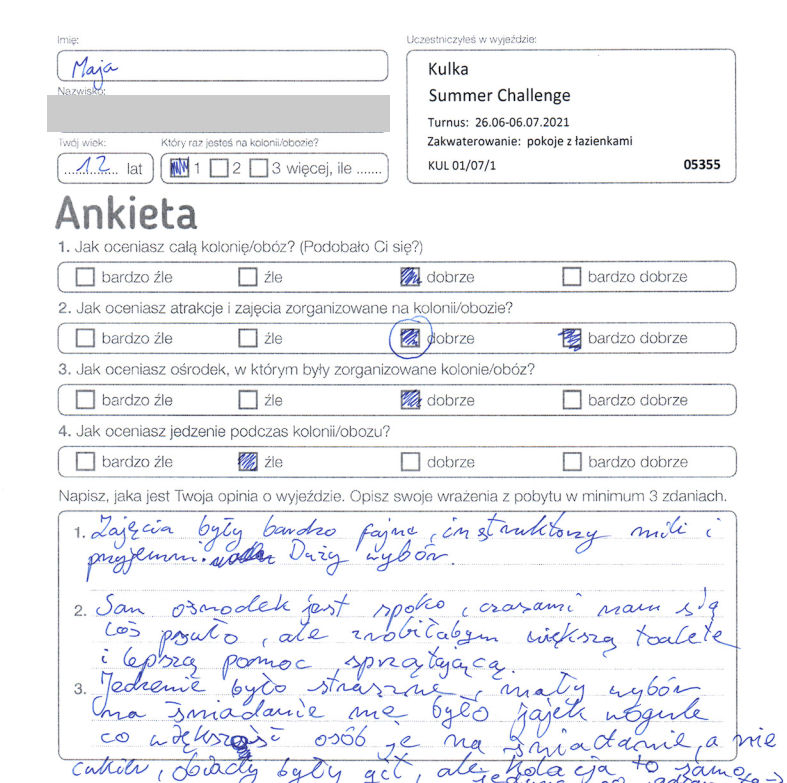 Imię:
Maja
Nazwisko:
Twój wiek:
12 lat
Który raz jesteś na kolonii/obozie?
1 2 3 więcej, ile .......
Uczestniczyłeś w wyjeździe:
Kulka
Summer Challenge
Turnus: 26.06-06.07.2021
Zakwaterowanie: pokoje z łazienkami
KUL 01/07/1 05355
Ankieta
1. Jak oceniasz całą kolonię/obóz? (Podobało Ci się?)
bardzo źle źle dobrze bardzo dobrze
2. Jak oceniasz atrakcje i zajęcia zorganizowane na kolonii/obozie?
bardzo źle źle dobrze bardzo dobrze
3. Jak oceniasz ośrodek, w którym były zorganizowane kolonie/obóz?
bardzo źle źle dobrze bardzo dobrze
4. Jak oceniasz jedzenie podczas kolonii/obozu?
bardzo źle źle dobrze bardzo dobrze
Napisz, jaka jest Twoja opinia o wyjeździe. Opisz swoje wrażenia z pobytu w minimum 3 zdaniach.
1. Zajęcia były bardzo fajne, instruktorzy mili i
przyjemni. Duży wybór.
2. Sam ośrodek jest spoko, czasami nam się
coś psuło, ale zrobiłabym większą toaletę
i lepszą pomoc sprzątającą.
3. Jedzenie było straszne, mały wybór
na śniadanie nie było jajek wogule
co większość osób je na śniadanie, a nie
cukier, obiady były git, ale kolacja to samo